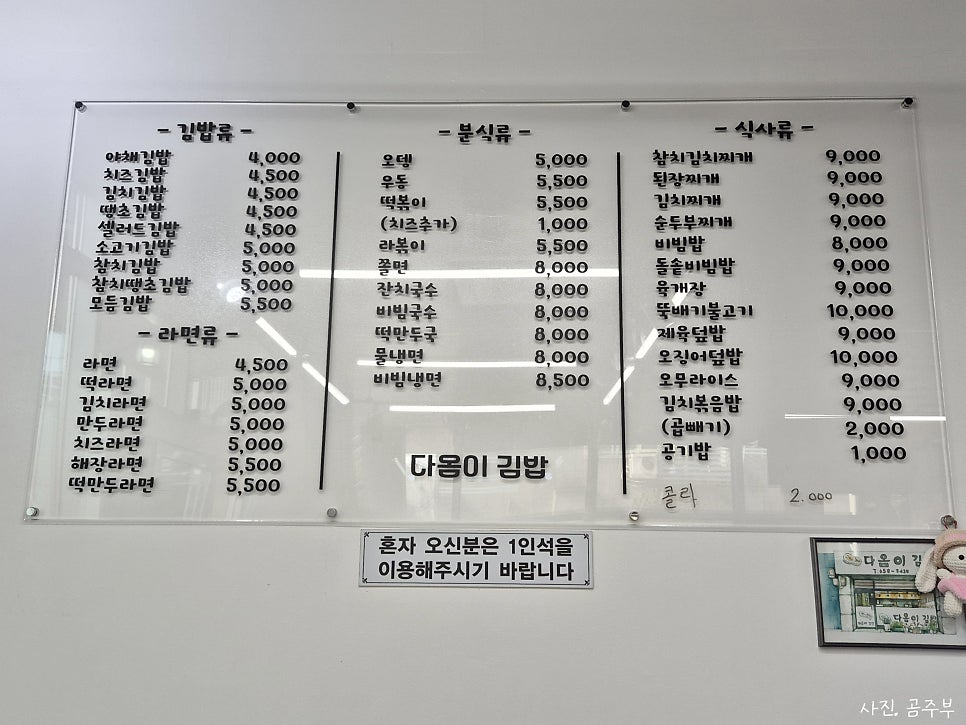 - 김밥류 -
야채김밥 4,000
치즈김밥 4,500
김치김밥 4,500
땡초김밥 4,500
셀러드김밥 4,500
소고기김밥 5,000
참치김밥 5,000
참치땡초김밥 5,000
모듬김밥 5,500
- 라면류 -
라면 4,500
떡라면 5,000
김치라면 5,000
만두라면 5,000
치즈라면 5,000
해장라면 5,500
떡만두라면 5,500
- 분식류 -
오뎅 5,000
우동 5,500
떡볶이 5,500
(치즈추가) 1,000
라볶이 5,500
쫄면 8,000
잔치국수 8,000
비빔국수 8,000
떡만두국 8,000
물냉면 8,000
비빔냉면 8,500
다옴이 김밥
- 식사류 -
참치김치찌개 9,000
된장찌개 9,000
김치찌개 9,000
순두부찌개 9,000
비빔밥 8,000
돌솥비빔밥 9,000
육개장 9,000
뚝배기불고기 10,000
제육덮밥 9,000
오징어덮밥 10,000
오무라이스 9,000
김치볶음밥 9,000
(곱빼기) 2,000
공기밥 1,000
콜라 2.000
혼자 오신분은 1인석을
이용해주시기 바랍니다
다옴이 김
다옴이 김밥
사진. 곰주부